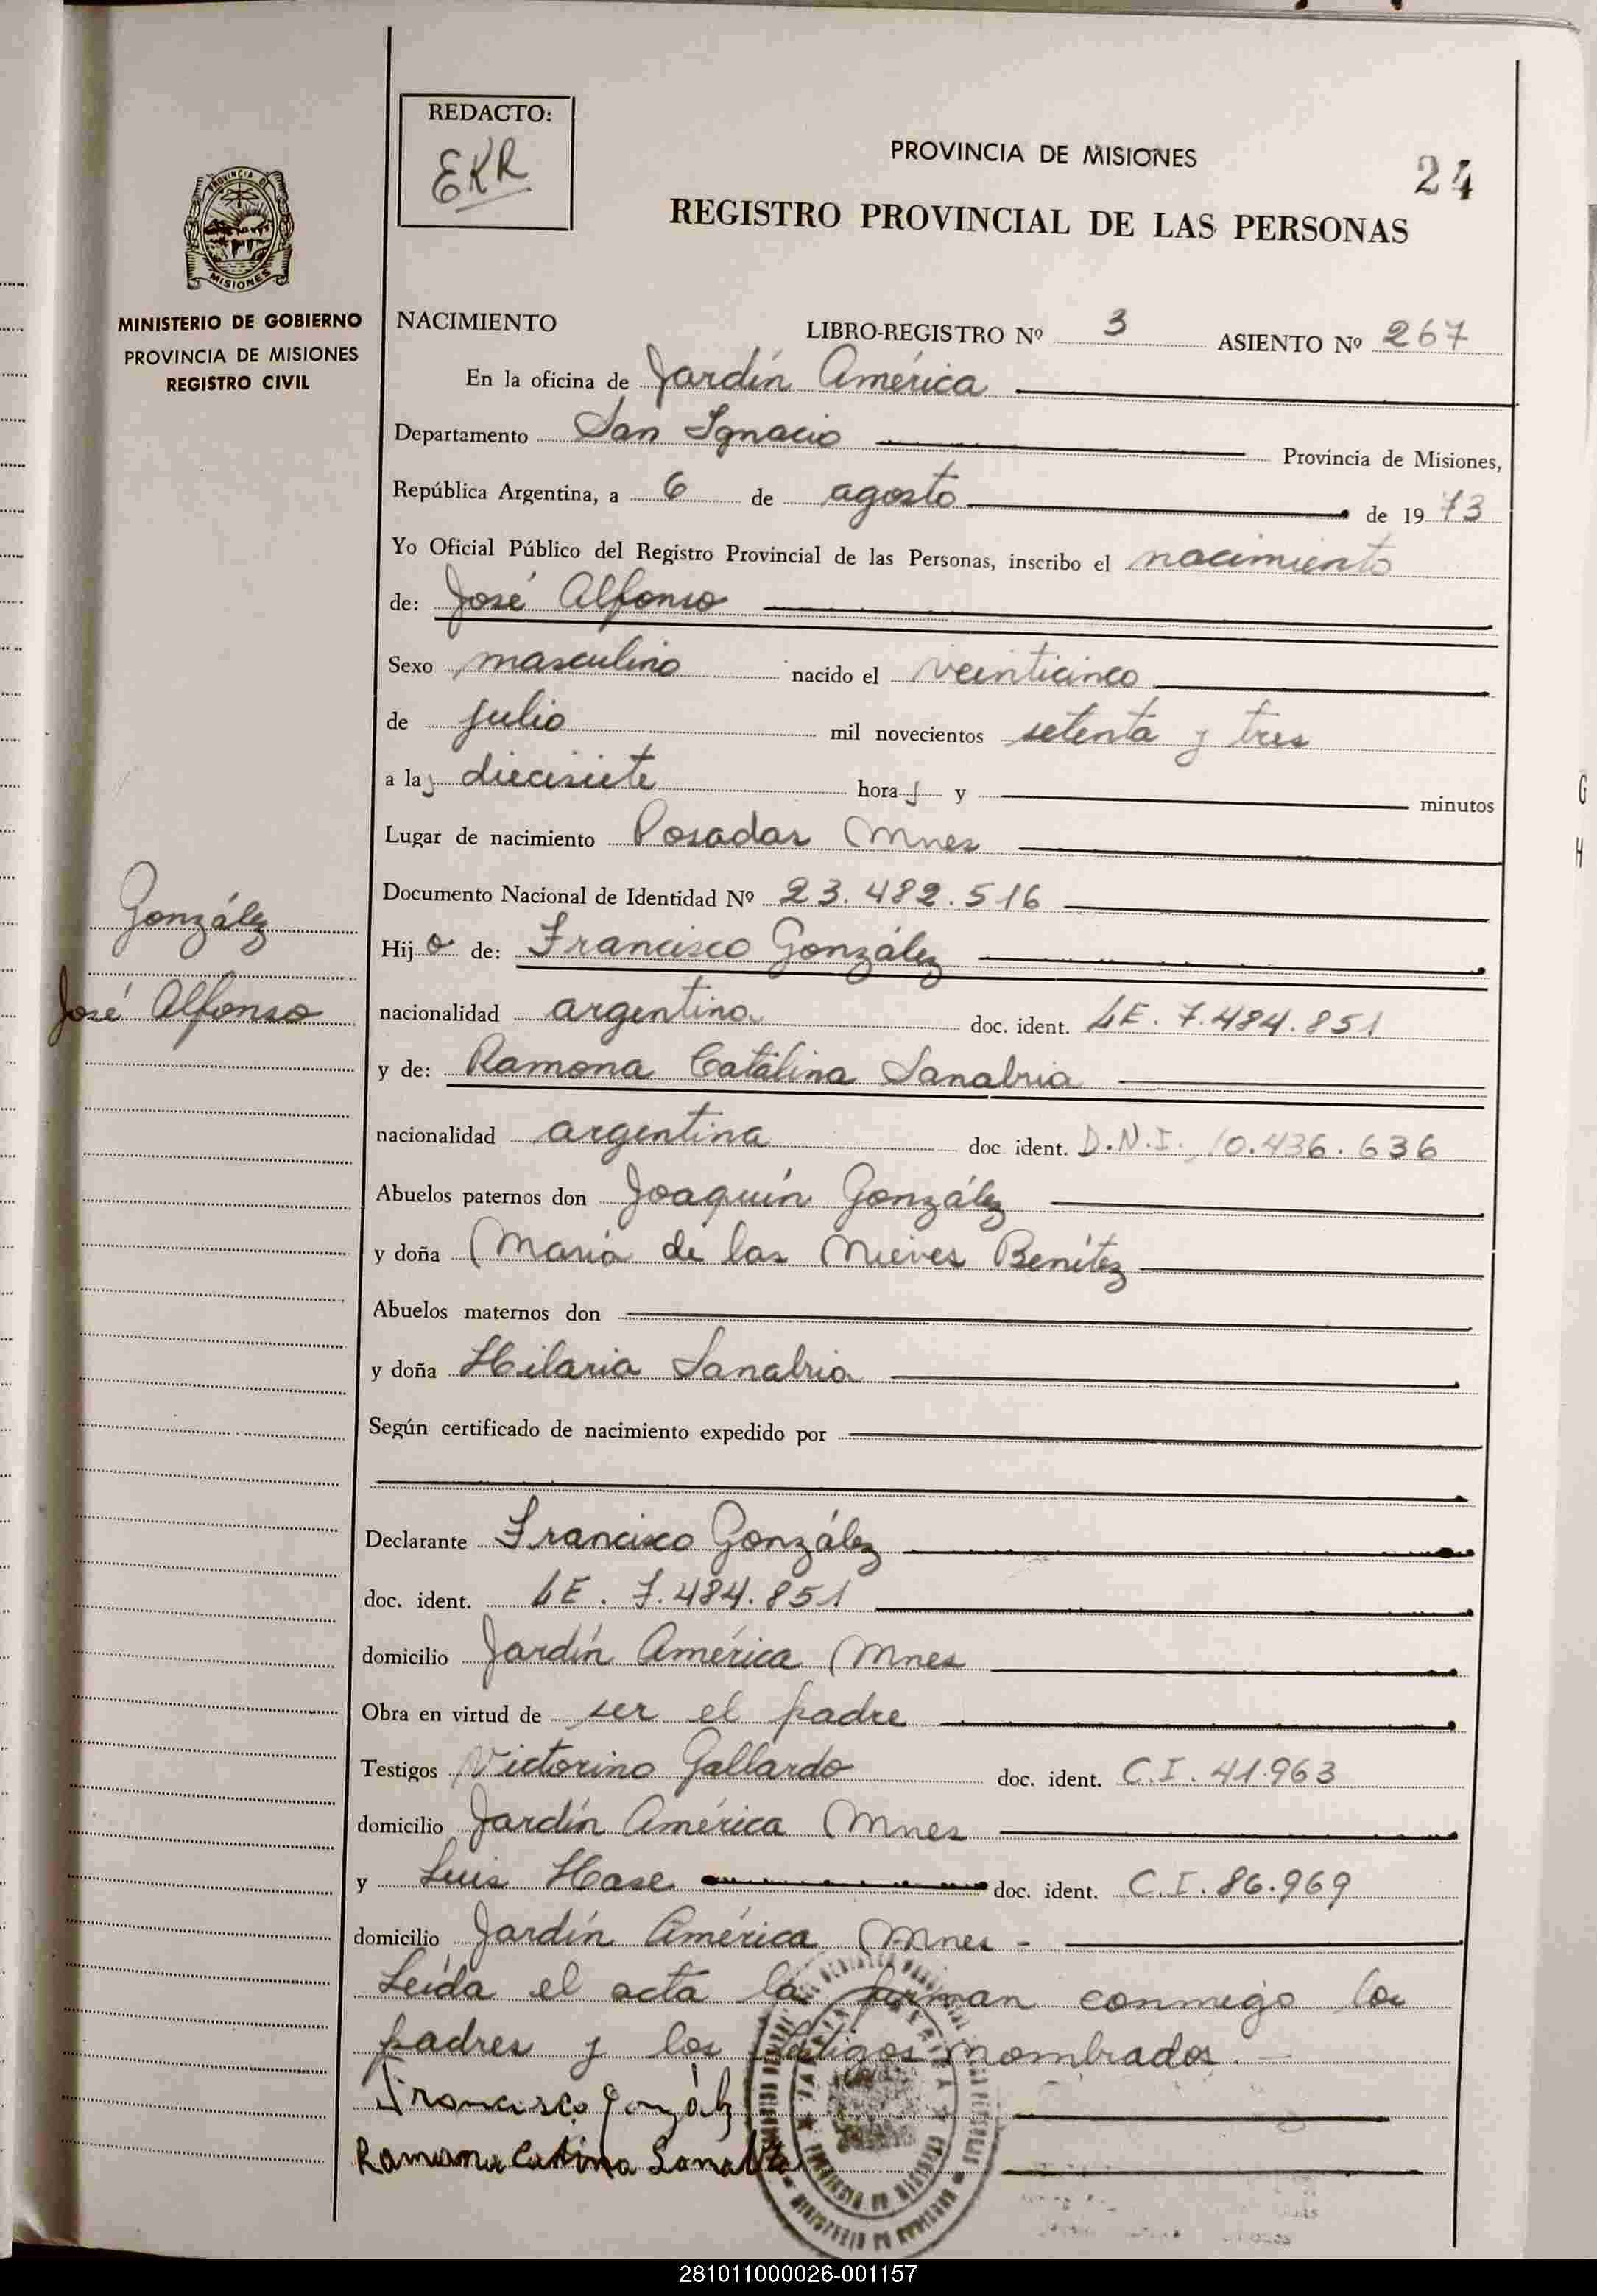 REDACTO:
EKR
PROVINCIA DE MISIONES
24
REGISTRO PROVINCIAL DE LAS PERSONAS
PROVINCIA DE
MISIONES
MINISTERIO DE GOBIERNO
PROVINCIA DE MISIONES
REGISTRO CIVIL
NACIMIENTO LIBRO-REGISTRO Nº 3 ASIENTO Nº 267
En la oficina de Jardín América
Departamento San Ignacio Provincia de Misiones,
República Argentina, a 6 de agosto de 1973
Yo Oficial Público del Registro Provincial de las Personas, inscribo el nacimiento
de: José Alfonso
Sexo masculino nacido el veinticinco
de julio mil novecientos setenta y tres
a las diecisiete horas y minutos
Lugar de nacimiento Posadas Mnes
Documento Nacional de Identidad Nº 23.482.516
González
Hijo de: Francisco González
José Alfonso
nacionalidad argentina doc. ident. LE. 7.484.851
y de: Ramona Catalina Sanabria
nacionalidad argentina doc ident. D.N.I. 10.436.636
Abuelos paternos don Joaquín González
y doña María de las Nieves Benítez
Abuelos maternos don
y doña Hilaria Sanabria
Según certificado de nacimiento expedido por
Declarante Francisco González
doc. ident. LE. 7.484.851
domicilio Jardín América Mnes
Obra en virtud de ser el padre
Testigos Victorino Gallardo doc. ident. C.I. 41.963
domicilio Jardín América Mnes
y Luis Hase doc. ident. C.I. 86.969
domicilio Jardín América Mnes -
Leída el acta la firman conmigo los
padres y los testigos nombrados. -
Francisco Gonzál
Ramona Catina Sanabria
281011000026-001157